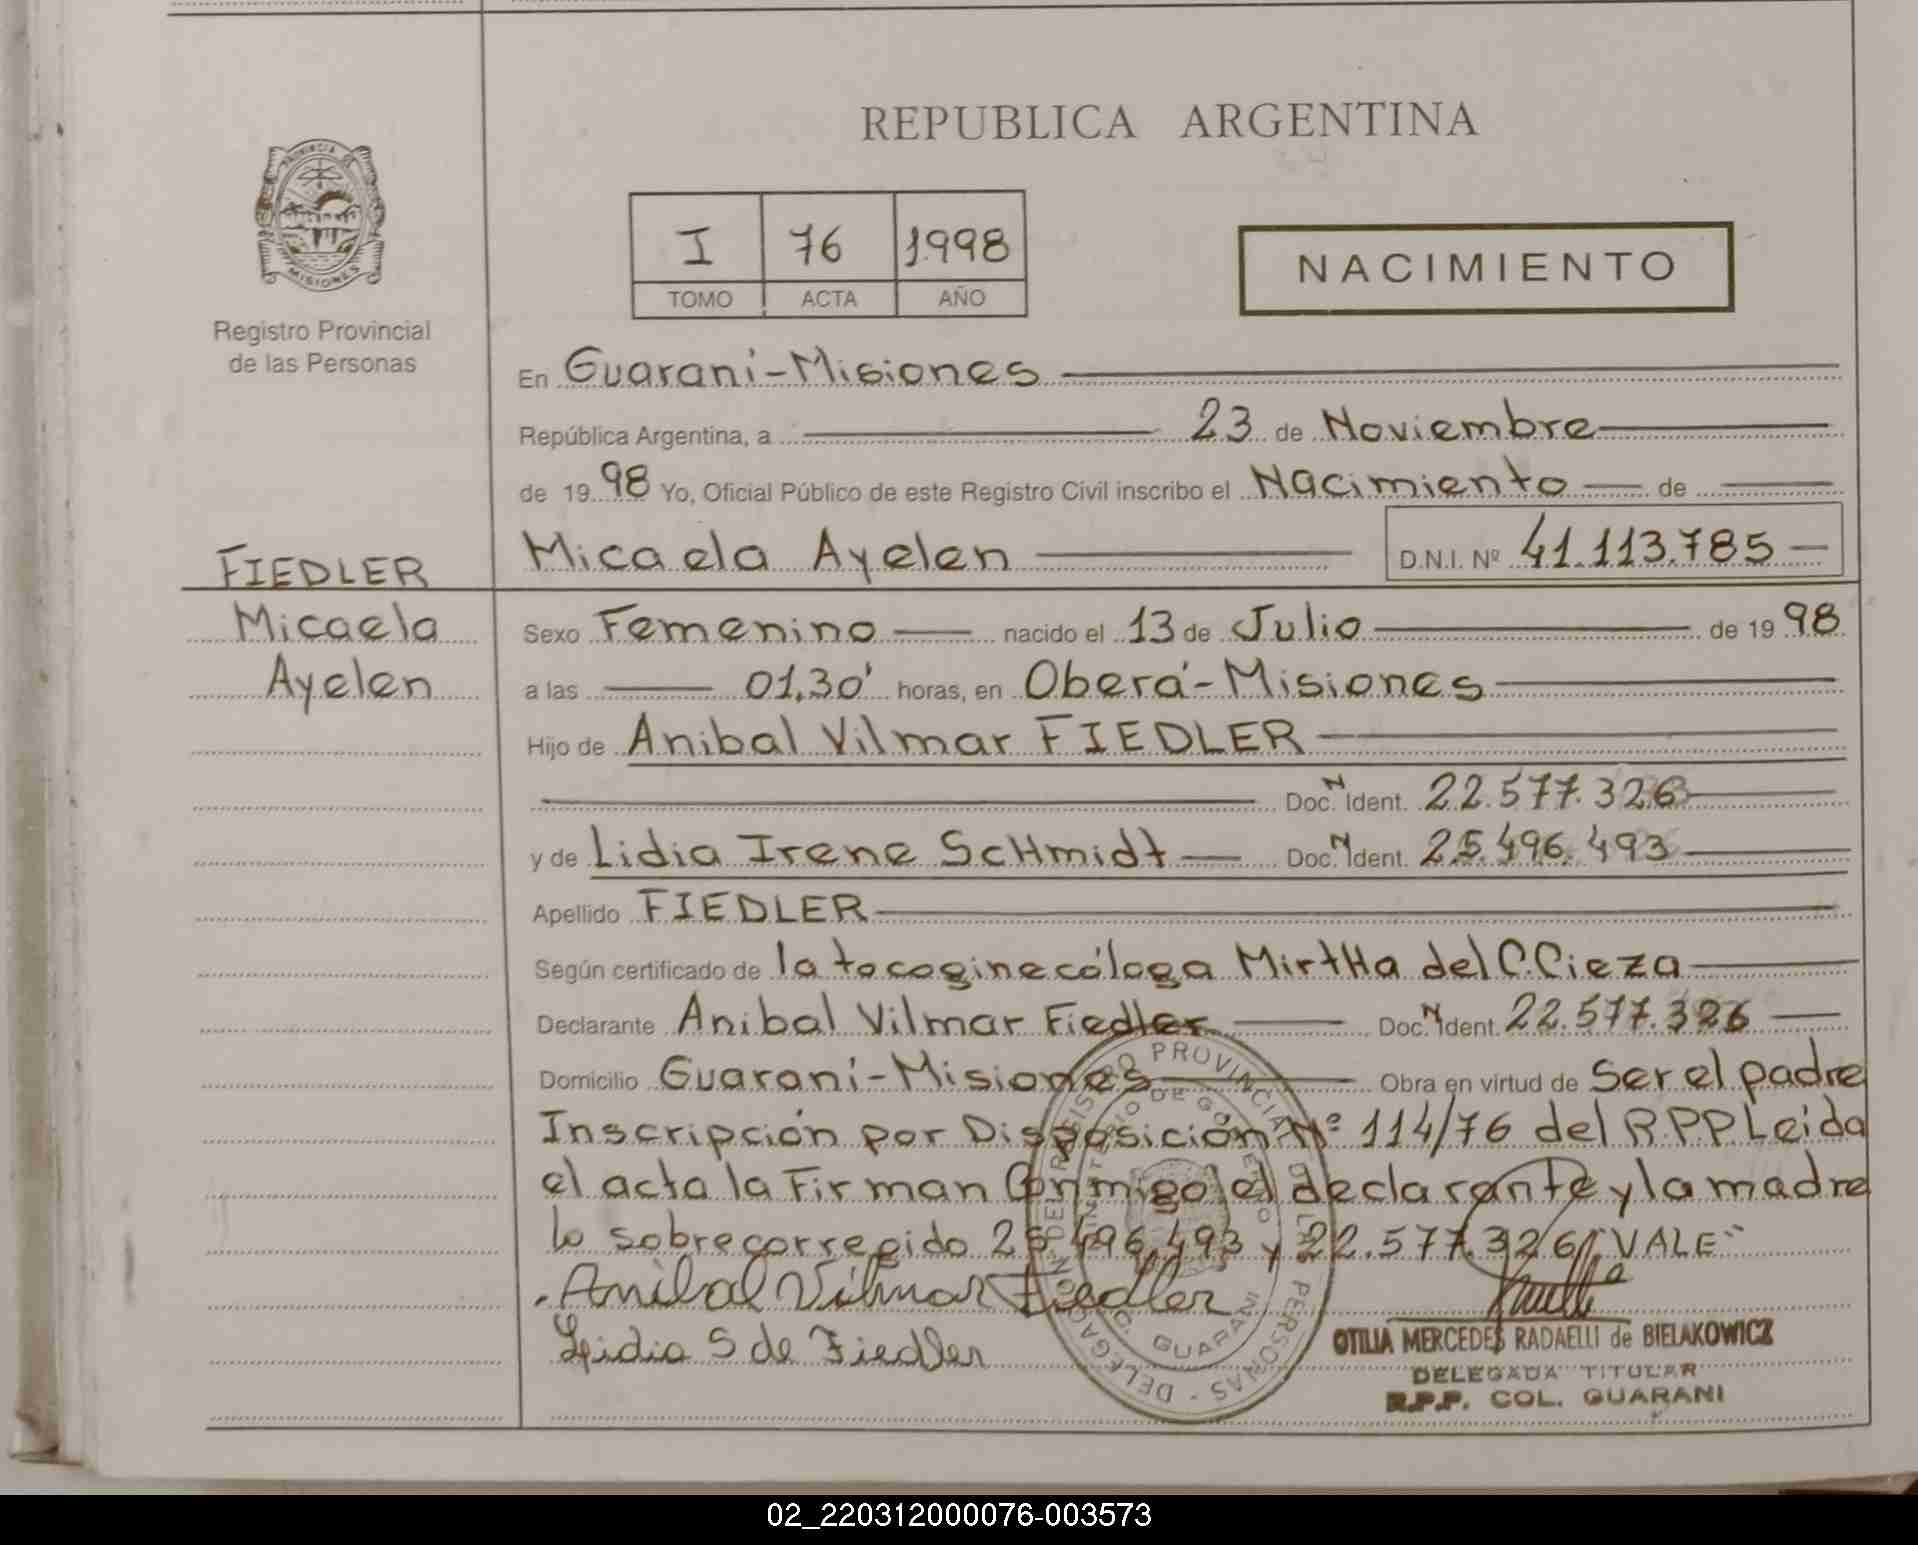 REPUBLICA ARGENTINA
PROVINCIA DE
MISIONES
Registro Provincial
de las Personas
I 76 1998
TOMO ACTA AÑO
NACIMIENTO
En Guaraní-Misiones
República Argentina, a 23 de Noviembre
de 19 98 Yo, Oficial Público de este Registro Civil inscribo el Nacimiento de
Micaela Ayelen D.N.I. Nº 41.113.785
FIEDLER
Micaela
Ayelen
Sexo Femenino nacido el 13 de Julio de 19 98
a las 01,30' horas, en Oberá-Misiones
Hijo de Anibal Vilmar FIEDLER
Doc. N Ident. 22.577.326
y de Lidia Irene ScHmidt Doc. N Ident. 25.496.493
Apellido FIEDLER
Según certificado de la tocoginecóloga MirtHa del C. Cieza
Declarante Anibal Vilmar Fiedler Doc. N Ident. 22.577.326
Domicilio Guaraní-Misiones Obra en virtud de Ser el padre
Inscripción por Disposición Nº 114/76 del R.P.P Leida
el acta la Firman Conmigo el declarante y la madre
lo sobrecorregido 25.496.493 y 22.577.326 "VALE"
Anibal Vilmar Fiedler
Lidia S de Fiedler
OTILIA MERCEDES RADAELLI de BIELAKOWICZ
DELEGADA TITULAR
R.P.P. COL. GUARANI
02_220312000076-003573